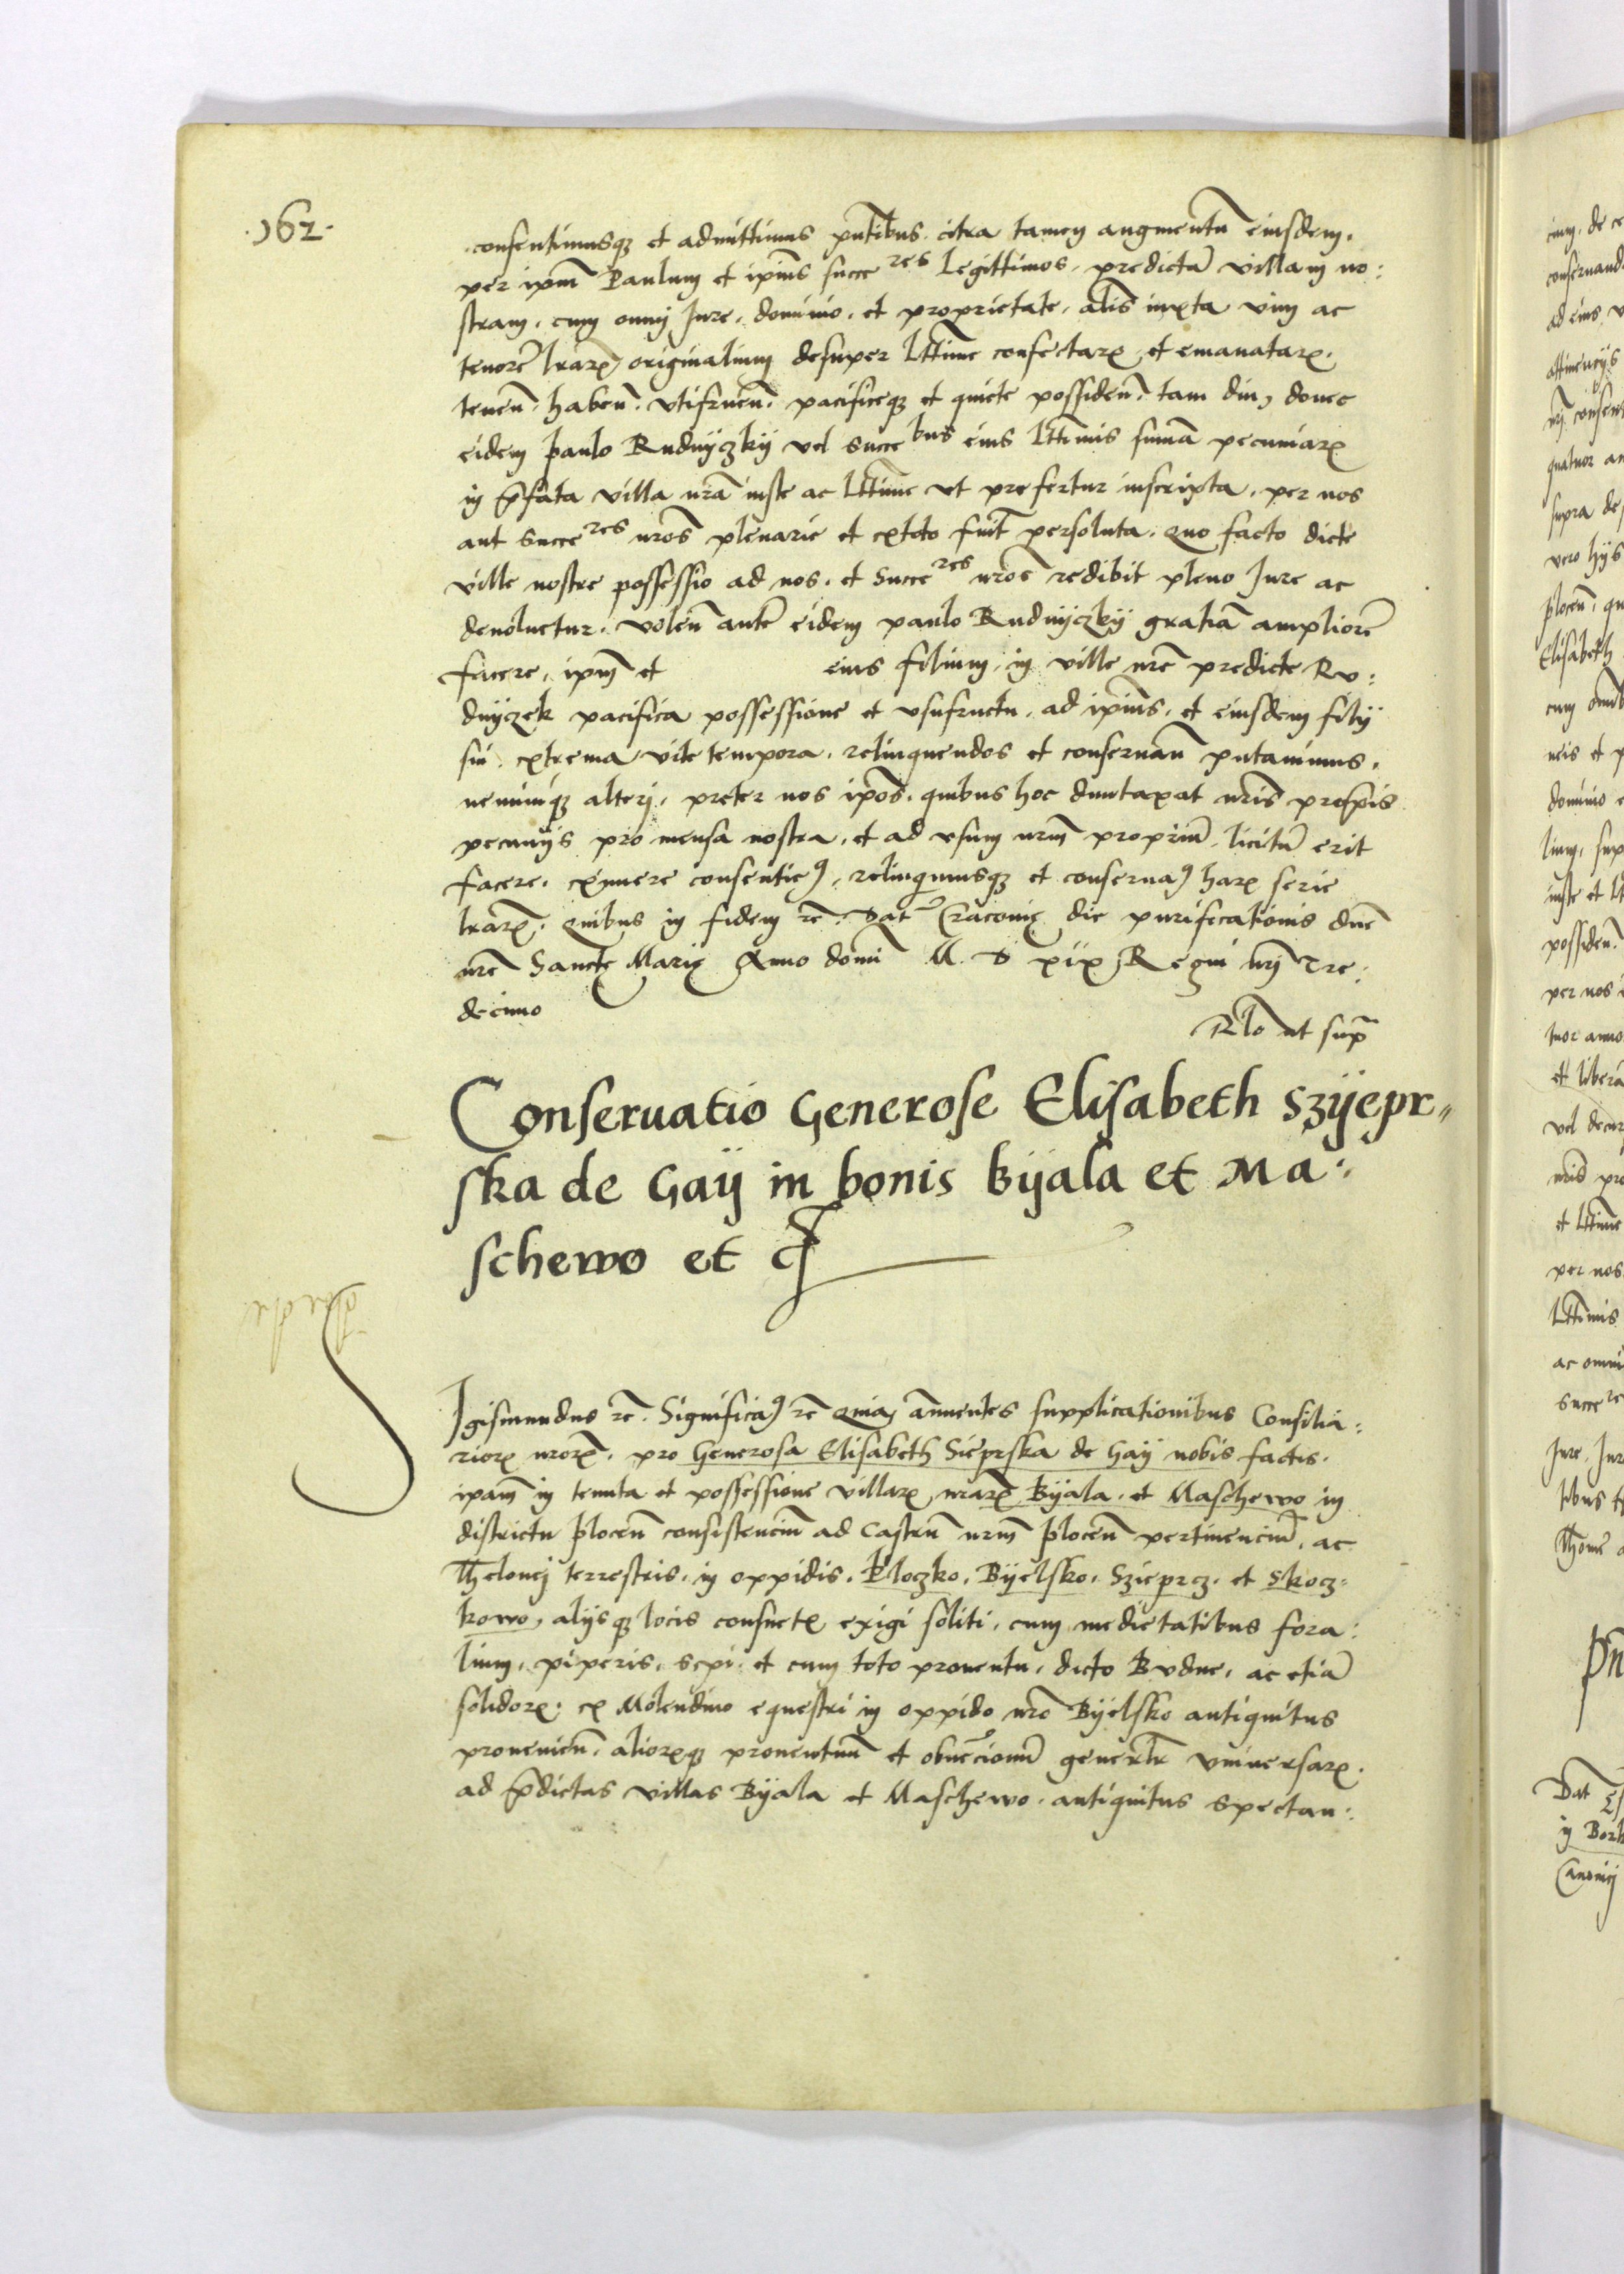 162.
consentimusq3 et admittimus pn̄tibus. citra tamen augmentū eiusdem.
per ipm̄ Paulum et ipius succe res Legittimos. predictā villam no:
stram. cum omnj Jure. dominio. et proprietate. alis iuxta vim ac
tenorē lrarꝝ originalium desuper lttime confectarꝝ et emanatarꝝ.
tenen̄. haben̄. vtifruen̄. pacificeq3 et quiete possiden̄. tam diu, donec
eidem paulo Rudnyczky vel Succe bus eius lttimis sumā pecuniarꝝ
in p̄fata villa nr̄a iuste ac lttime vt prefertur inscripta. per nos
aut Succe res nr̄os plenarie et extoto fuit̄ persoluta. Quo facto dicte
ville nostre possessio ad nos. et Succe res nr̄os redibit pleno Jure ac
deuoluetur. Volen̄ autē eidem paulo Rudnyczky gratiā ampliorē
facere. ipm̄ et eius filium. in ville nr̄e predicte Ru:
dnyczek pacifica possessione et vsufructu. ad ipius. et eiusdem filij
sui. extrema vite tempora. relinquendos et conseruan̄ putauimus.
neminiq3 alterj. preter nos ipos. quibus hoc duntaxat nr̄is proprijs
pecunijs pro mensa nostra. et ad vsum nrm̄ propriū. licitū erit
facere. eximere consentieꝰ. relinquimusq3 et conseruaꝰ harꝝ serie
lrarꝝ. Quibus in fidem rē. Dat Cracouię die purificationis dn̄e
nr̄e Sancte Marię Anno domi M. D xix Regni nrj Tre:
decimo
Rlo ut sup̄
Conseruatio Generose Elisabeth Szyepr„
ska de Gaÿ in bonis Byala et Ma:
schewo et c̄
S
Jgismundus rē. Significaꝰ rē Quia annuentes supplicationibus Consilia:
riorꝝ nrorꝝ. pro Generosa Elisabeth Sieprska de Gaÿ nobis factis.
ipam̄ in tenuta et possessione villarꝝ nrarꝝ Byala. et Maschewo in
districtu plocen̄ consistencium ad Castrū nrm̄ plocen̄ pertinenciū. ac
Thelonej terrestris. in oppidis. Ploczko. Byelsko. Szieprcz. et Skocz=
kowo, alijsq3 locis consuetꝭ exigi soliti. cum medietatibus fora:
lium. piperis. Sepi. et cum toto prouentu. dicto Budne. ac etiā
solidorꝝ. ex Molendino equestri in oppido nr̄o Byelsko antiquitus
prouenien̄. aliorꝝq3 prouentuū et obuēcionū generlr vniuersarꝝ.
ad p̄dictas villas Byala et Maschewo. antiquitus Spectan: